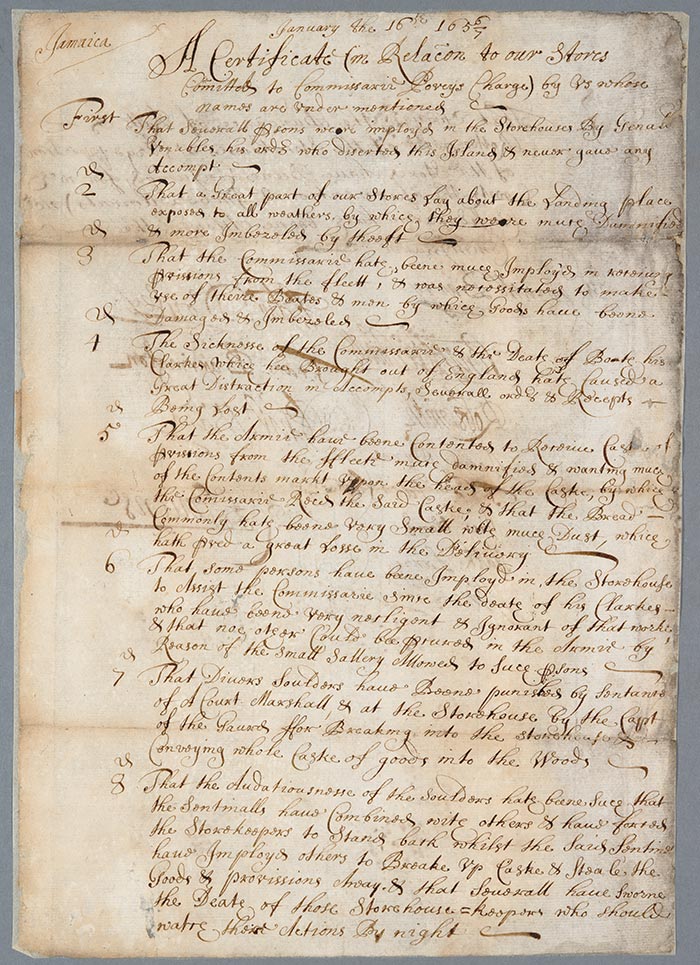 January the 16th 1656/7
Jamaica
A Certificate (in Relacon to our Stores
Comitted to Commissarie Poveys Charge) by us whose
names are under mentioned
First That Severall psons were imployd in the Storehouses By Generall
Venables his ordr who diserted this Island & never gave any
Accompt
2 That a Great part of our Stores Lay about the Landing place
exposed to all weathers, by which they weare much Damnified
& more Imbezeled by theeft
3 That the Commissarie hath beene much Imployd in receiving
pvissions from the fleett, & was necessitated to make
use of theire Boates & men by which Goods have beene
Damaged & Imbezeled
4 The Sicknesse of the Commissarie & the Death of Boath his
Clarkes which hee Brought out of England hath Caused a
Great Distraction in Accompts, Severall ordrs & Recepts
Being Lost
5 That the Armie have beene Contented to Receive Cask of
pvissions from the ffleete much damnified & wanting much
of the Contents markt uppon the head of the Caske, by which
the Comissarie Recd the Said Caske, & that the Bread
Commonly hath beene very Small with much Dust, which
hath pved a great Losse in the Delivery
6 That, some persons have beene Imployd in the Storehouse
to Assist the Commissarie Since the death of his Clarkes
who have beene very negligent & Ignorant of that worke,
& that noe other Could be pcured in the Armie by
Reason of the Small Sallery Allowed to Such psons
7 That Divers Souldiers have Beene punished by Sentance
of A Court Marshall, & at the Storehouse by the Capt
of the Gaurd ffor Breaking into the Storehouse &
Conveying whole Caske of goods into the Woods
8 That the Audatiousnesse of the Souldiers hath beene Such that
the Sentinalls have Combined with others & have forced
the Storekeepers to Stand back whilst the Said Sentinells
have Imployd others to Breake up Caske & Steale the
Goods & provissions Away, & that Severall have Sworne
the Death of those Storehouse=keepers who should
watch there Actions By night